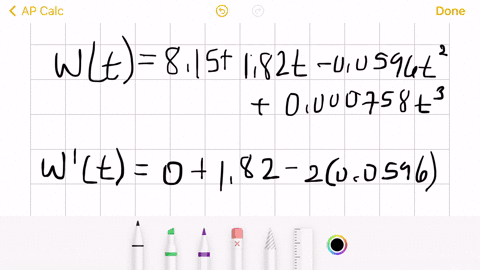 AP Calc
Done
W(t) = 8.15 + 1.82t - 0.0596t²
+ 0.000758t³
W'(t) = 0 + 1.82 - 2(0.0596)